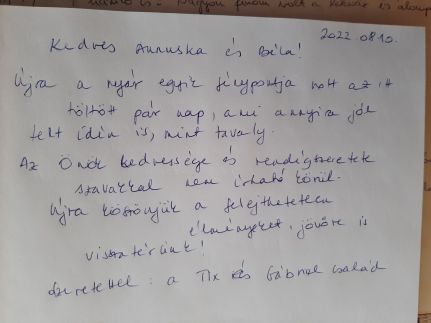 2022.08.10.
Kedves Annuska és Béla!
Újra a nyár egyik fénypontja volt az itt
töltött pár nap, ami annyira jól
telt idén is, mint tavaly.
Az Önök kedvessége és vendégszeretete
szavakkal nem írható körül.
Újra köszönjük a felejthetetlen
élményeket, jövőre is
visszatérünk!
Szeretettel: a és Gábnel család